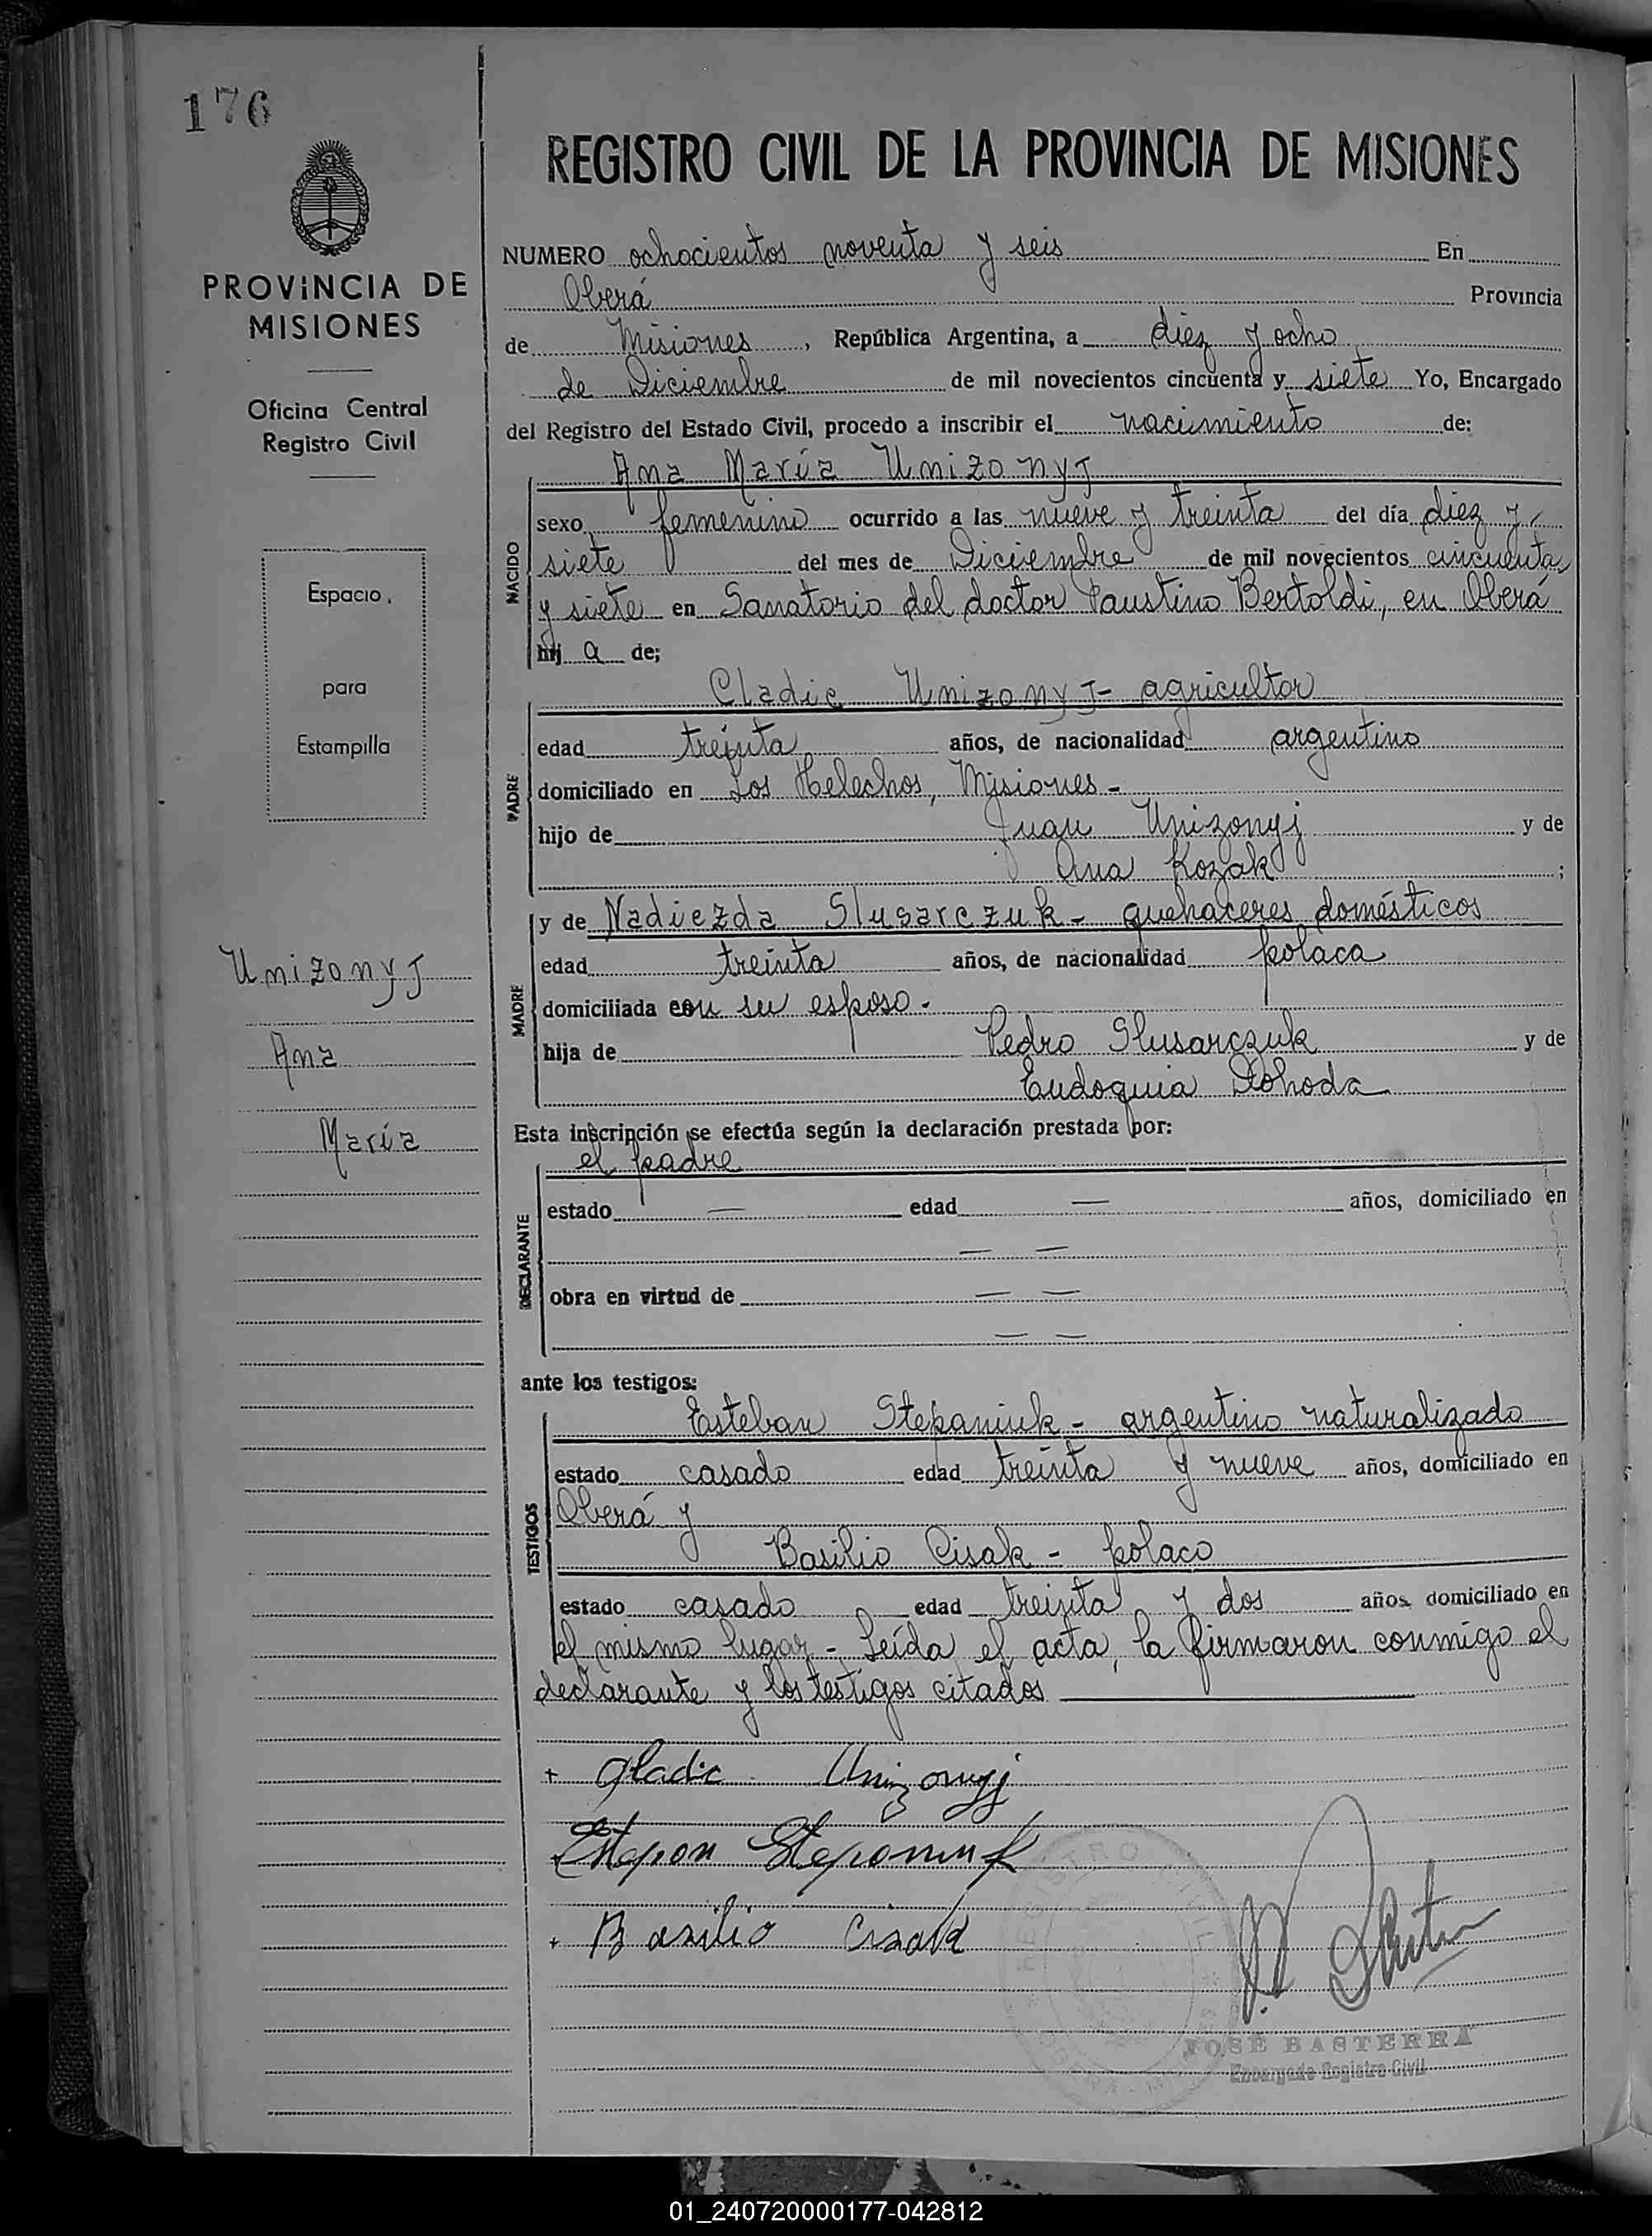 176
PROVINCIA DE
MISIONES
Oficina Central
Registro Civil
Espacio
para
Estampilla
Unizonyj
Ana
María
REGISTRO CIVIL DE LA PROVINCIA DE MISIONES
NUMERO ochocientos noventa y seis En
Oberá Provincia
de Misiones, República Argentina, a diez y ocho
de Diciembre de mil novecientos cincuenta y siete Yo, Encargado
del Registro del Estado Civil, procedo a inscribir el nacimiento de:
Ana María Unizonyj
NACIDO
sexo femenino ocurrido a las nueve y treinta del día diez y
siete del mes de Diciembre de mil novecientos cincuenta
y siete en Sanatorio del doctor Faustino Bertoldi, en Oberá
hij a de;
Cladic Unizonyj - agricultor
PADRE
edad treinta años, de nacionalidad argentino
domiciliado en Los Helechos, Misiones -
hijo de Juan Unizonyj y de
Ana Kozak ;
y de Nadiezda Slusarczuk - quehaceres domésticos
MADRE
edad treinta años, de nacionalidad polaca
domiciliada con su esposo -
hija de Pedro Slusarczuk y de
Eudoquia Dohoda
Esta inscripción se efectúa según la declaración prestada por:
el padre
DECLARANTE
estado — edad — años, domiciliado en
— —
obra en virtud de — —
— —
ante los testigos:
Esteban Stepaniuk - argentino naturalizado
TESTIGOS
estado casado edad treinta y nueve años, domiciliado en
Oberá y
Basilio Cisak - polaco
estado casado edad treinta y dos años domiciliado en
el mismo lugar - Leída el acta, la firmaron conmigo el
declarante y los testigos citados
+ Gladic Unizonyj
+ Bazilio Cisak
REGISTRO CIVIL
JOSE BASTERRA
Encargado Registro Civil
01_240720000177-042812